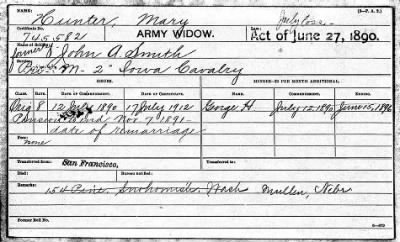 (3—P. A. 3)
Name of pensioner Hunter, Mary
ARMY WIDOW.
Certificate No. 745,582 Act of June 27, 1890.
former John A. Smith
"M" 2" Iowa Cavalry
ISSUES. MINORS—$2 PER MONTH ADDITIONAL.
CLASS. RATE. DATE OF COMMENCEMENT. DATE OF CERTIFICATE. NAME. COMMENCEMENT. EXPIRATION.
Orig 8 12 July 1890 17 July 1912 George H. July 12, 1890 June 15, 1896
Pension Nov 7, 1891—
date of remarriage.
Fee:
none
Transferred from: San Francisco,
Transferred to:
Remarks: 154 Pine. Snohomish, Wash Mullen, Nebr
Former Roll No.